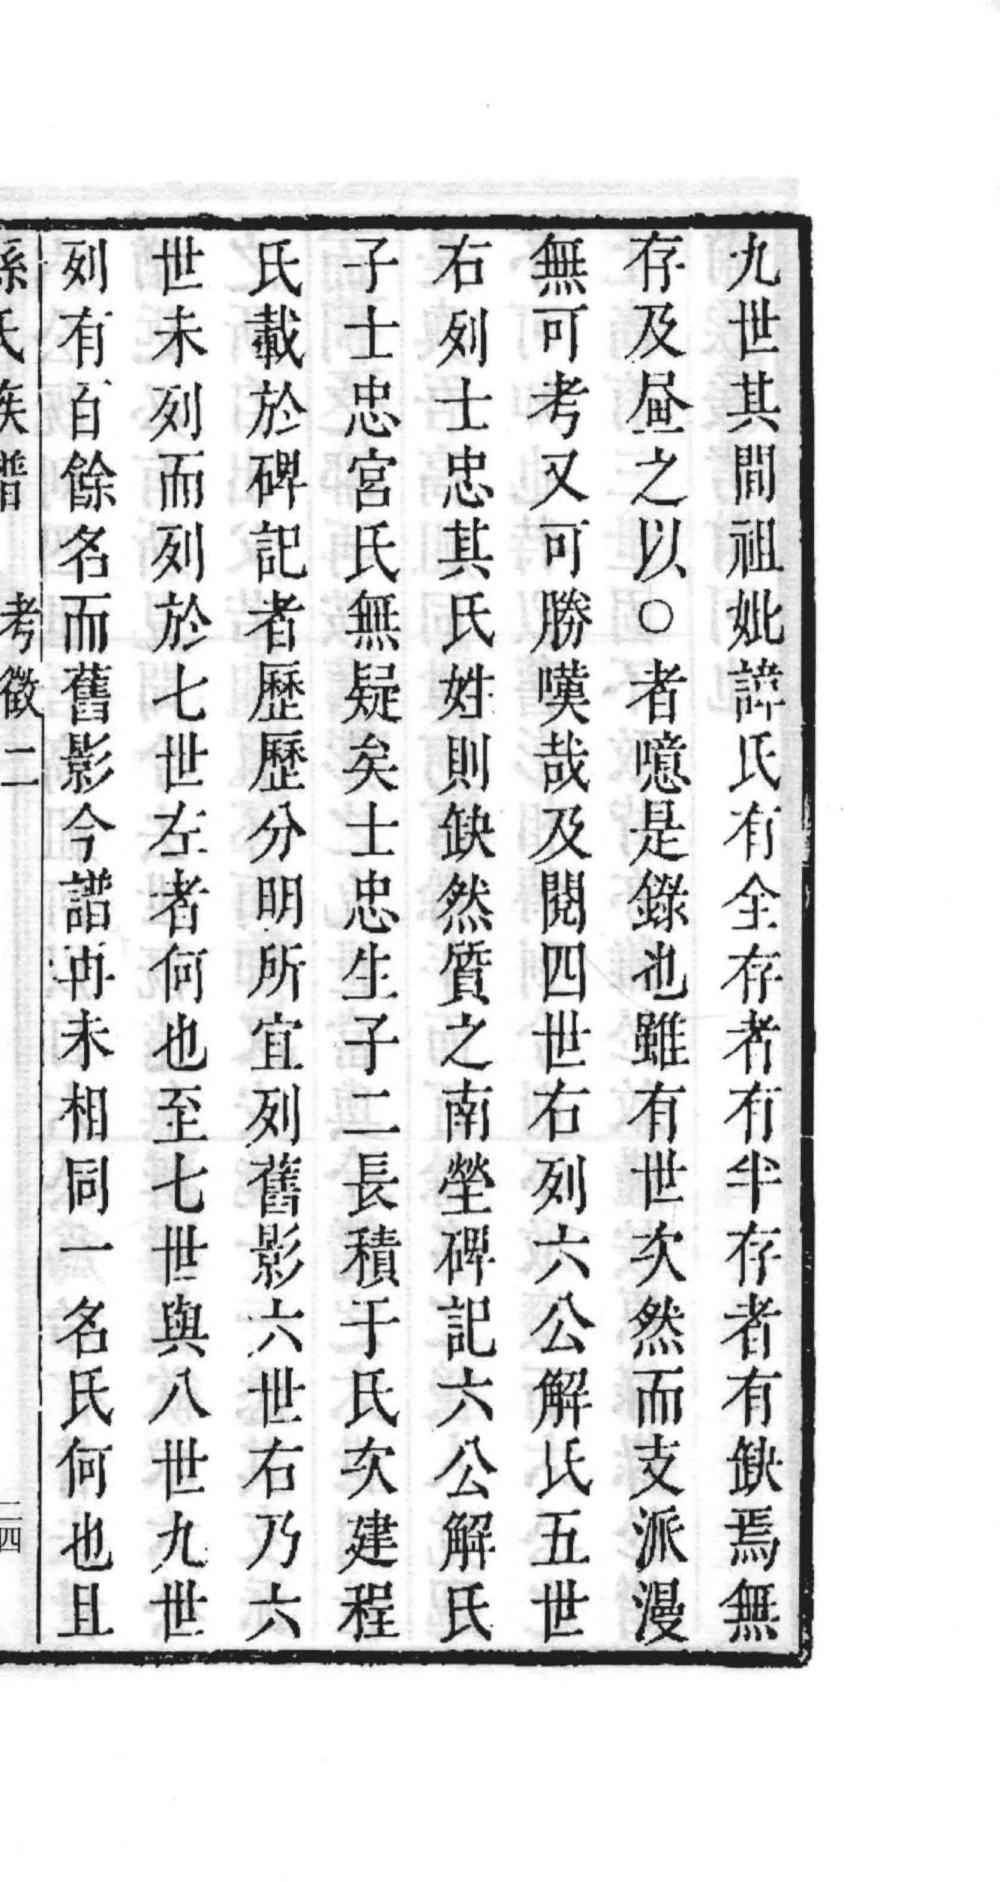 九世其間祖妣諱氏有全存者有半存者有缺焉無
存及昼之以○者噫是錄也雖有世次然而支派漫
無可考又可勝嘆哉及閱四世右列六公解氏五世
右列士忠其氏姓則缺然質之南塋碑記六公解氏
子士忠宮氏無疑矣士忠生子二長積于氏次建程
氏載於碑記者歷歷分明所宜列舊影六世右乃六
世未列而列於七世左者何也至七世與八世九世
列有百餘名而舊影今譜冉未相同一名氏何也且
孫氏族譜 考徵二 二四